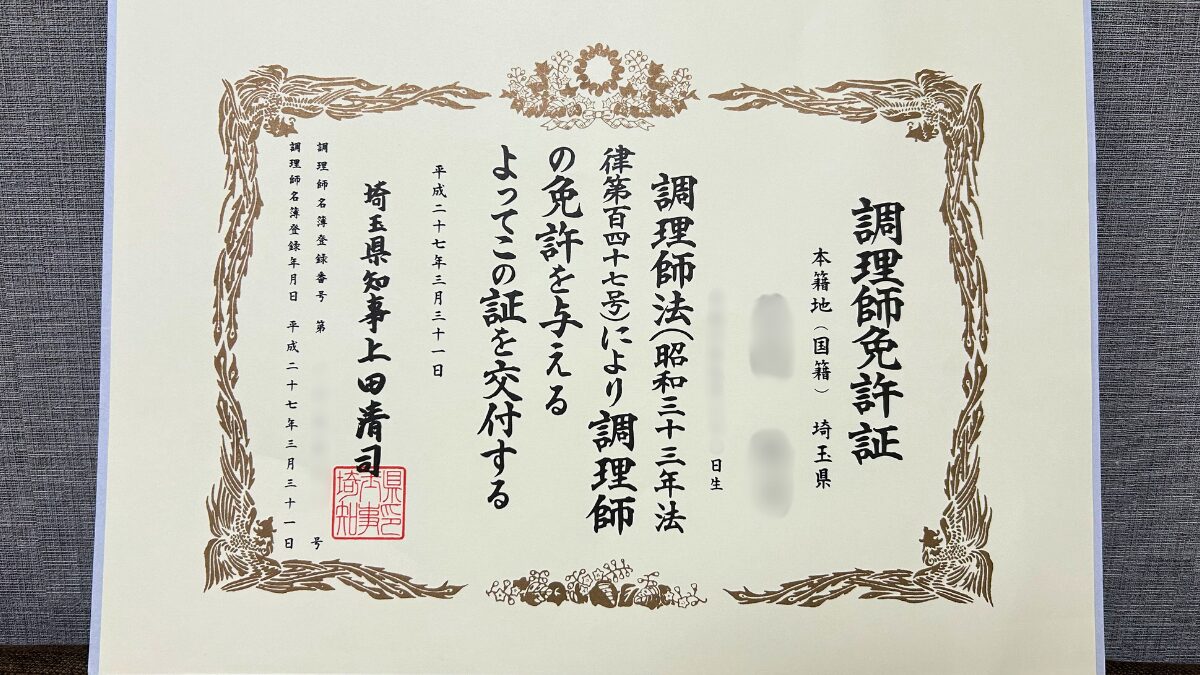 調理師免許証
本籍地（国籍） 埼玉県
日生
調理師法（昭和三十三年法
律第百四十七号）により調理師
の免許を与える
よってこの証を交付する
平成二十七年三月三十一日
埼玉県知事上田清司
埼玉県知事印
調理師名簿登録番号 第 号
調理師名簿登録年月日 平成二十七年三月三十一日